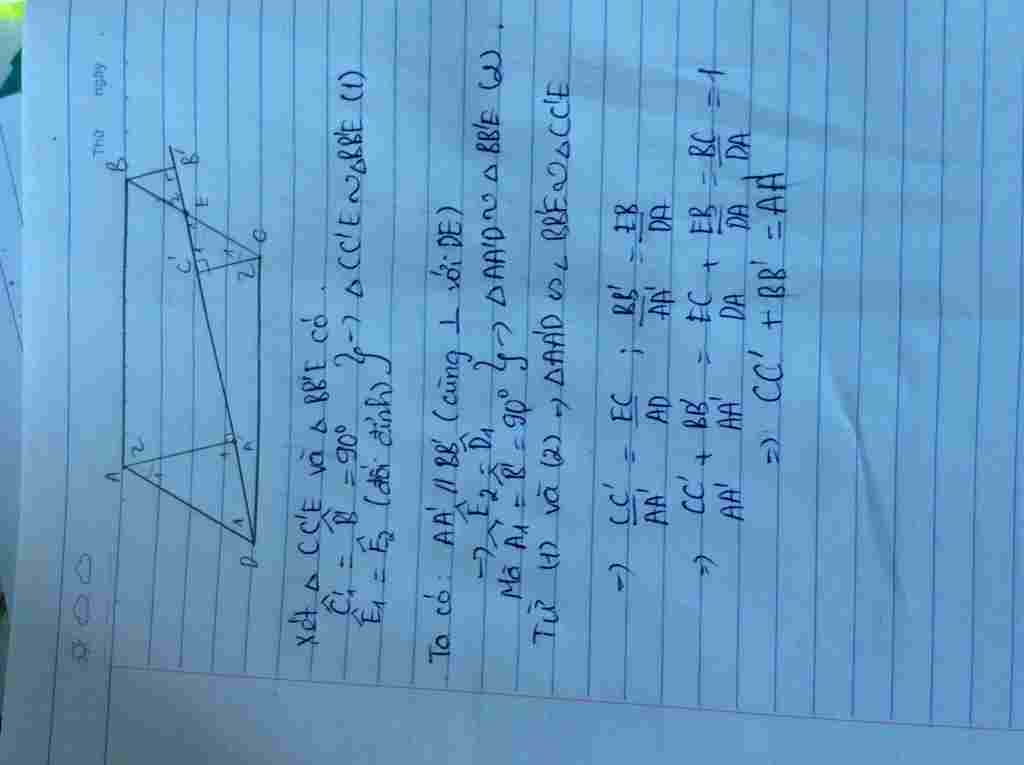 Thứ ngày
A B
C' E B'
D A' C
Xét △ CC'E và △ BB'E có
Ĉ'₁ = B̂' = 90°
Ê₁ = Ê₂ (đối đỉnh) } → △ CC'E ~ △BB'E (1)
Ta có: AA' // BB' (cùng ⊥ với DE)
→ Ê₂ = D̂₁
Mà Â₁ = B̂' = 90° } → △AA'D ~ △ BB'E (2).
Từ (1) và (2) → △AA'D ∽ △ BB'E ∽ △CC'E
⇒ CC'/AA' = EC/AD ; BB'/AA' = EB/DA
⇒ CC'/AA' + BB'/AA' = EC/DA + EB/DA = BC/DA = 1
⇒ CC' + BB' = AA'